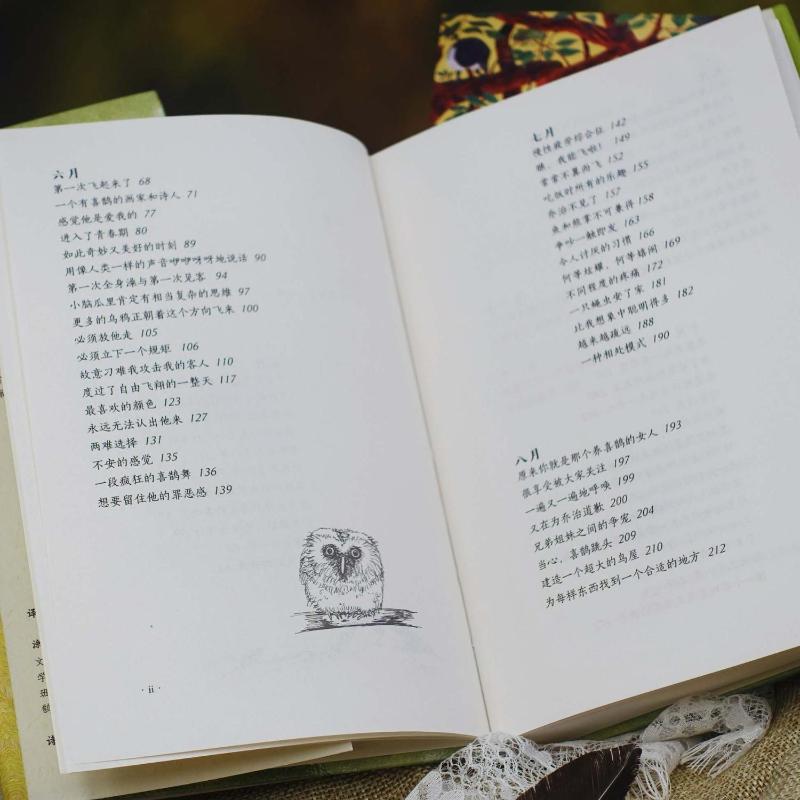 六月
第一次飞起来了 68
一个有喜鹊的画家和诗人 71
感觉他是爱我的 77
进入了青春期 80
如此奇妙又美好的时刻 89
用像人类一样的声音咿咿呀呀地说话 90
第一次全身澡与第一次见客 94
小脑瓜里肯定有相当复杂的思维 97
更多的乌鸦正朝着这个方向飞来 100
必须放他走 105
必须立下一个规矩 106
故意刁难我攻击我的客人 110
度过了自由飞翔的一整天 117
最喜欢的颜色 123
永远无法认出他来 127
两难选择 131
不安的感觉 135
一段疯狂的喜鹊舞 136
想要留住他的罪恶感 139
· ii ·
七月
慢性疲劳综合征 142
嘿，我能飞啦！ 149
常常不翼而飞 152
吃饭时所有的乐趣 155
乔治不见了 157
鱼和熊掌不可兼得 158
争吵一触即发 163
令人讨厌的习惯 166
何等炫耀，何等嬉闹 169
不同程度的疼痛 172
一只蝇虫安了家 181
比我想象中聪明得多 182
越来越疏远 188
一种相处模式 190
八月
原来你就是那个养喜鹊的女人 193
很享受被大家关注 197
一遍又一遍地呼唤 199
又在为乔治道歉 200
兄弟姐妹之间的争宠 204
当心，喜鹊跳头 209
建造一个超大的鸟屋 210
为每样东西找到一个合适的地方 212